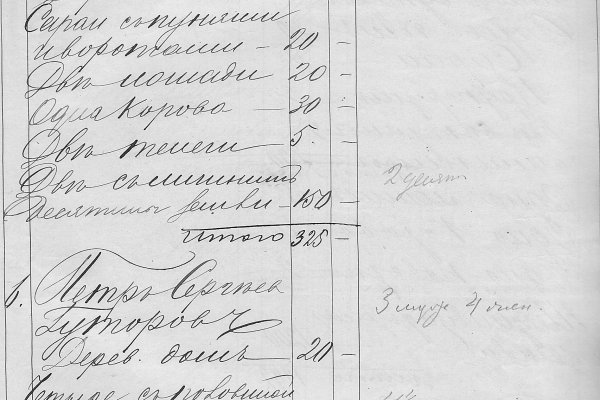 Сараи съ пуняши
и воротами — 20 —
Двѣ лошади 20 —
Одна корова — 30 —
Двѣ телеги 5. —
Двѣ съ
десятины земли — 150 — 2 десят
Итого 325 —
6. Петръ Сергѣев
Гуторовъ 3 муж 4 жен.
Дерев. домъ — 20 —